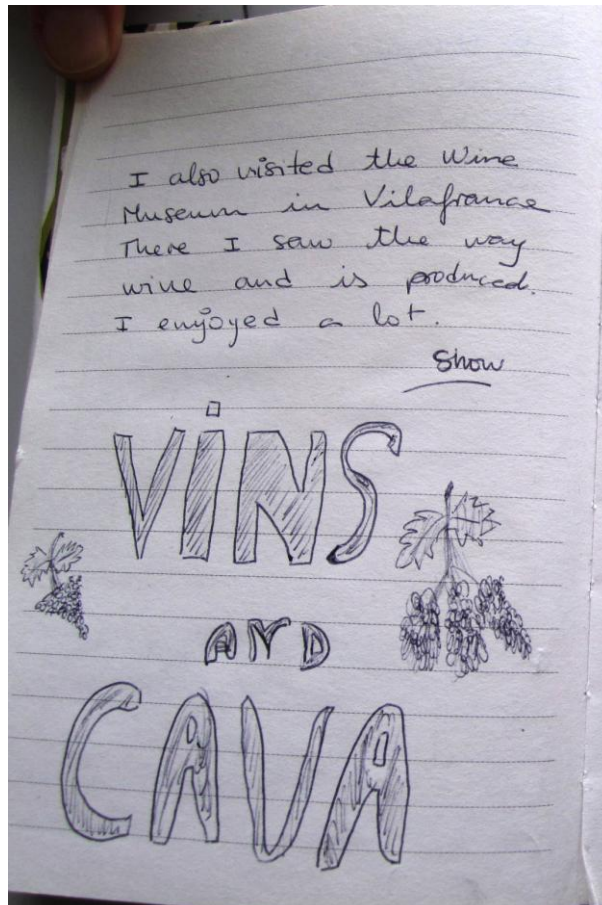 I also visited the Wine
Museum in Vilafrance
There I saw the way
wine and is produced.
I enyoyed a lot.
Show
VINS
AND
CAVA